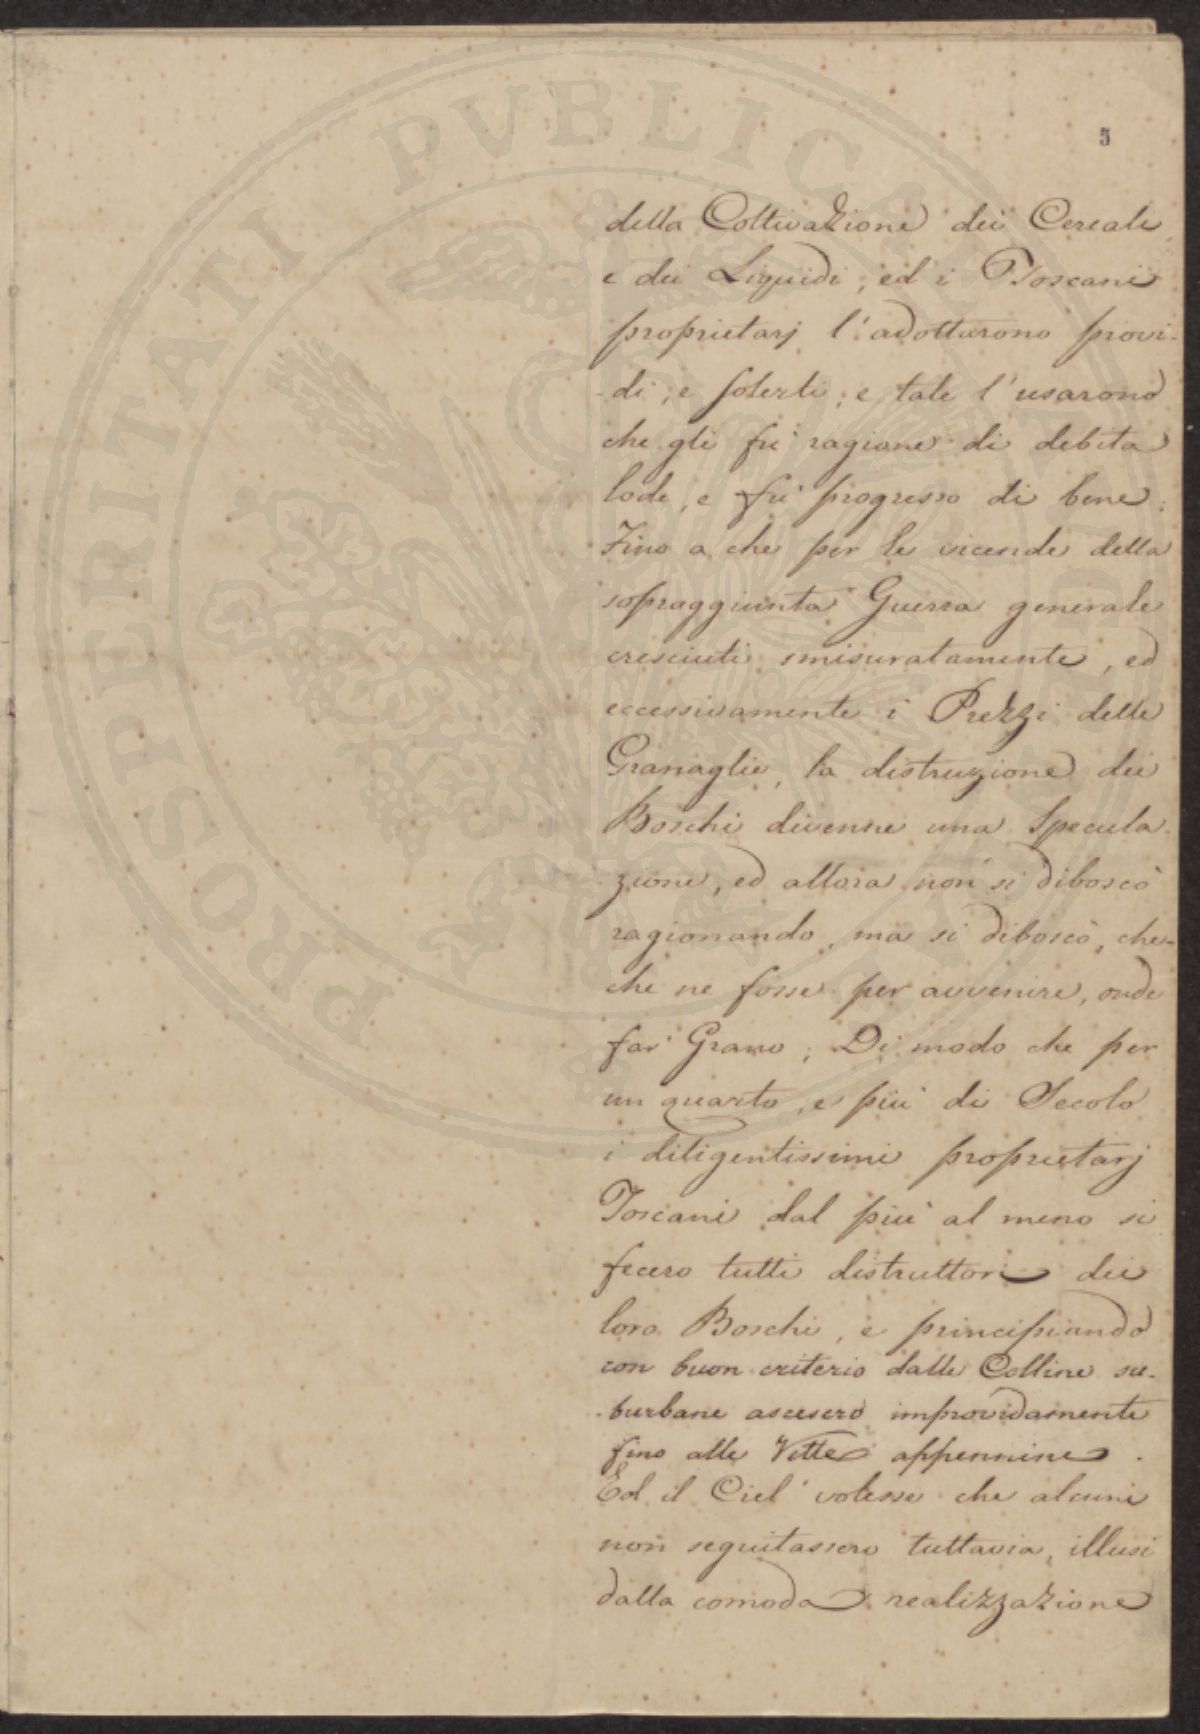 PROSPERITATI PUBLICAE
5
della Coltivazione dei Cereali,
e dei Liquidi, ed i Toscani
proprietarj l'adottarono provi-
-di, e solerti; e tale l'usarono
che gli fù ragione di debita
lode, e fù progresso di bene.
Fino a che per le vicende della
sopraggiunta Guerra generale
cresciuti smisuratamente, ed
eccessivamente i Prezzi delle
Granaglie, la distruzione dei
Boschi divenne una Specula-
zione, ed allora non si diboscò
ragionando, ma si diboscò, che-
che ne fosse per avvenire, onde
far Grano; Di modo che per
un quarto, e più di Secolo
i diligentissimi proprietarj
Toscani dal più al meno si
fecero tutti distruttori dei
loro Boschi, e principiando
con buon criterio dalle Colline su-
-burbane ascesero improvidamente
fino alle Vette appennine.
Ed il Ciel' volesse che alcuni
non seguitassero tuttavia, illusi
dalla comoda realizzazione